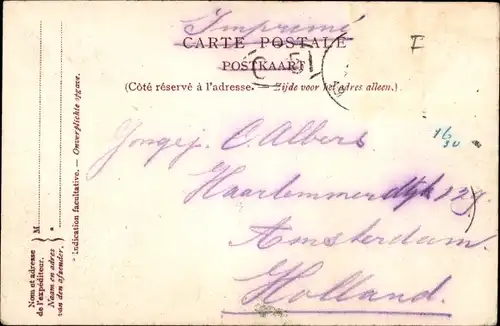 Imprimé
CARTE POSTALE
POSTKAART
C 51
(Côté réservé à l'adresse. — Zijde voor het adres alleen.)
F
16
30
Jongej. C. Albers
Haarlemmerdijk 129.
Amsterdam.
Holland.
M.
*
Nom et adresse
de l'expéditeur.
Naam en adres
van den afzender.
* Indication facultative. — Onverplichte opgave.